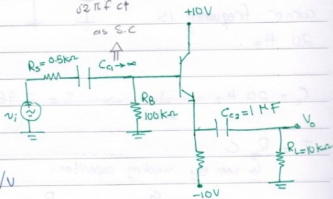 jΩπf C↑
as S.C
+10V
Rs=0.5kΩ
Cc1→∞
RB
100kΩ
Cc2=1 MF
Vo
RL=10kΩ
vi
-10V